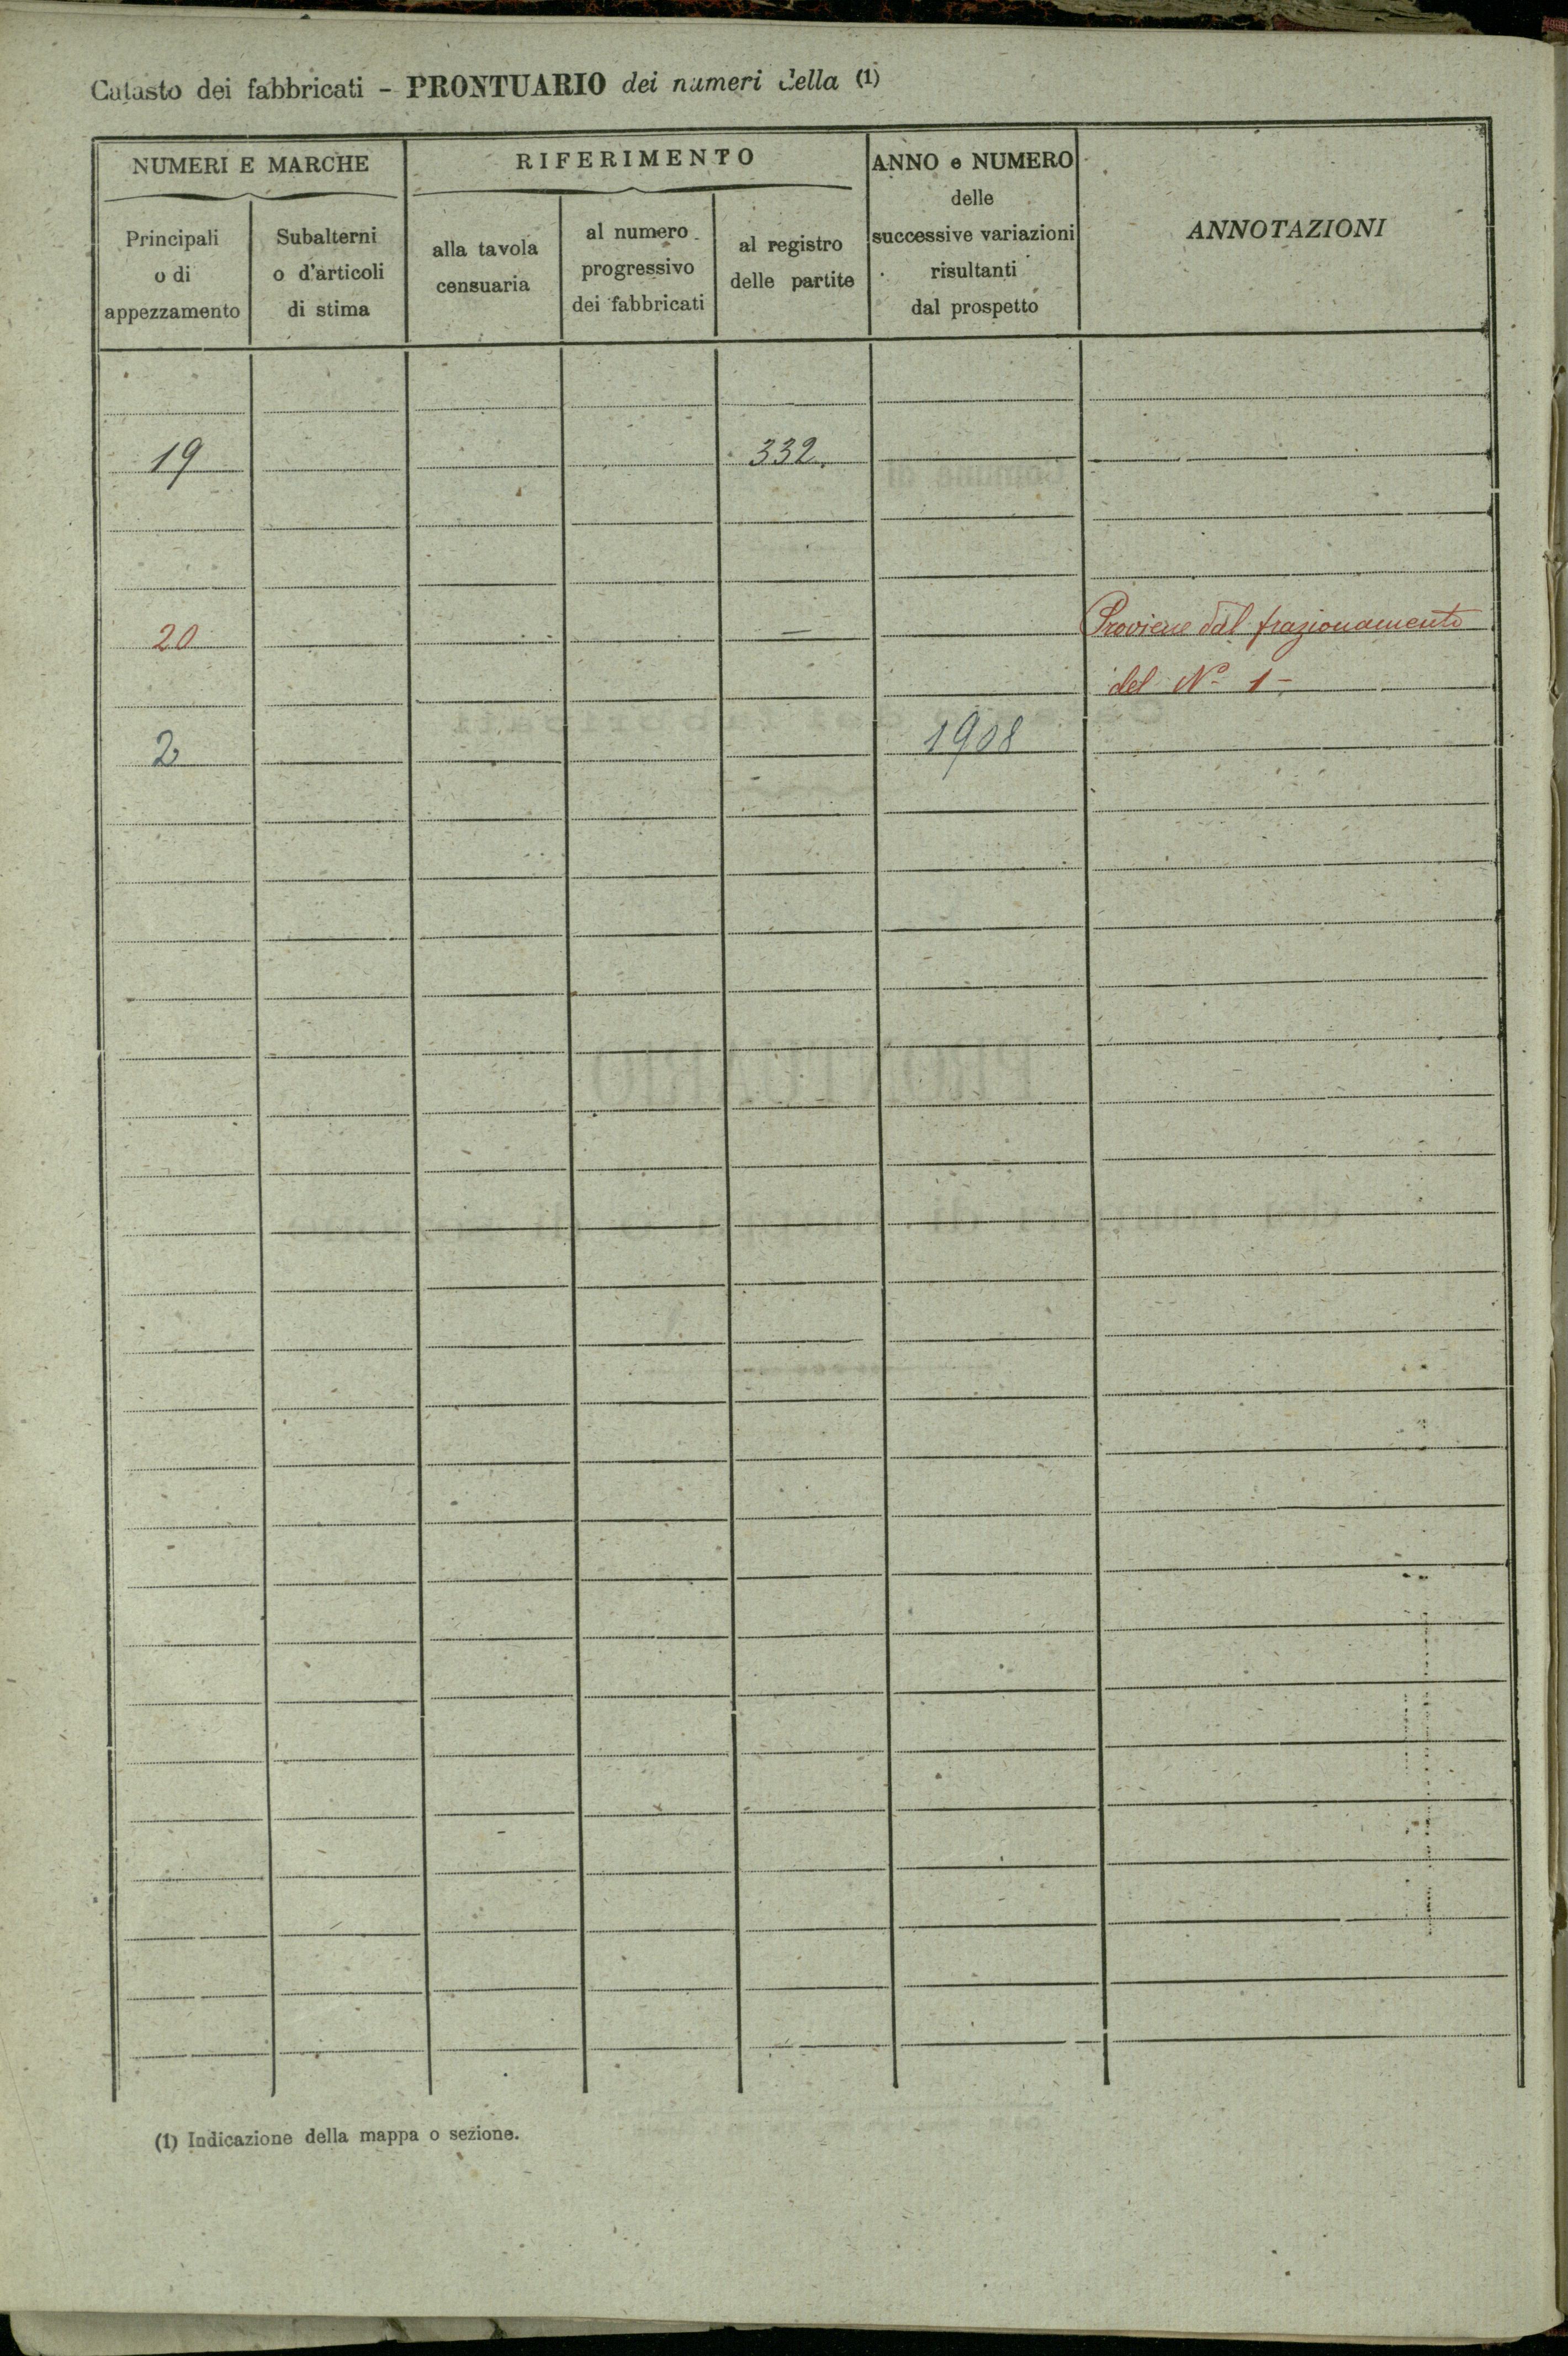 Catasto dei fabbricati - PRONTUARIO dei numeri della (1)
NUMERI E MARCHE
RIFERIMENTO
ANNO e NUMERO
delle
successive variazioni
risultanti
dal prospetto
ANNOTAZIONI
Principali
o di
appezzamento
Subalterni
o d'articoli
di stima
alla tavola
censuaria
al numero
progressivo
dei fabbricati
al registro
delle partite
19 332.
20 — Proviene dal frazionamento
del Nº 1 -
2 1908
(1) Indicazione della mappa o sezione.